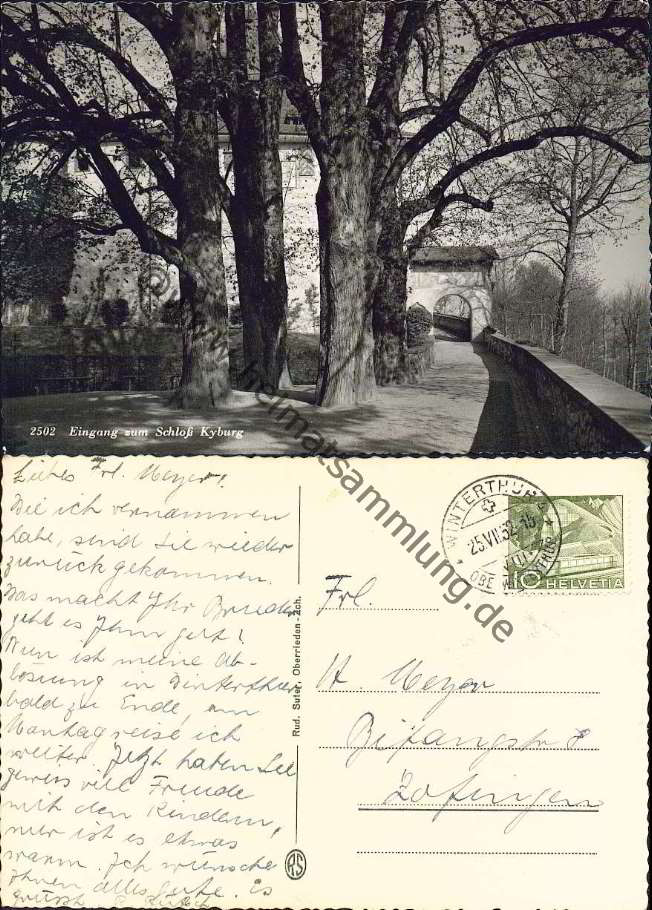 2502 Eingang zum Schloß Kyburg
heimatsammlung.de
Liebes Frl. Meyer!
Wie ich vernommen
habe, sind Sie wieder
zurück gekommen.
Das macht Ihr Bruder
geht es Ihm gut?
Nun ist meine Ab-
lösung in Winterthur
bald zu Ende, am
Montag reise ich
weiter. Jetzt haben Sie
gewiss viel Freude
mit den Kindern,
nur ist es etwas
warm. Ich wünsche
Ihnen alles Gute. Es
grüsst
Rud. Suter, Oberrieden-Zch.
RS
WINTERTHUR
25.VII.52.15
10 HELVETIA
Frl.
H. Meyer
Bifangstr 8
Zofingen